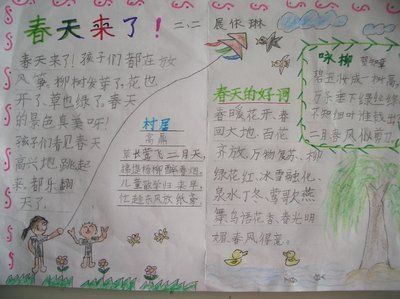 春天来了！ 二.二 晨依琳
春天来了！孩子们都在放
风筝。柳树发芽了，花也
开了，草也绿了。春天
的景色真美呀！
孩子们看见春天
高兴地跳起
来，都乐翻
天了。
村居
高鼎
草长莺飞二月天，
拂堤杨柳醉春烟。
儿童散学归来早，
忙趁东风放纸鸢。
春天的好词
春暖花开、春
回大地、百花
齐放、万物复苏、柳
绿花红、冰雪融化、
泉水丁冬、莺歌燕
舞、鸟语花香、春光明
媚、春风得意。
咏柳 贺知章
碧玉妆成一树高，
万条垂下绿丝绦
不知细叶谁裁出
二月春风似剪刀